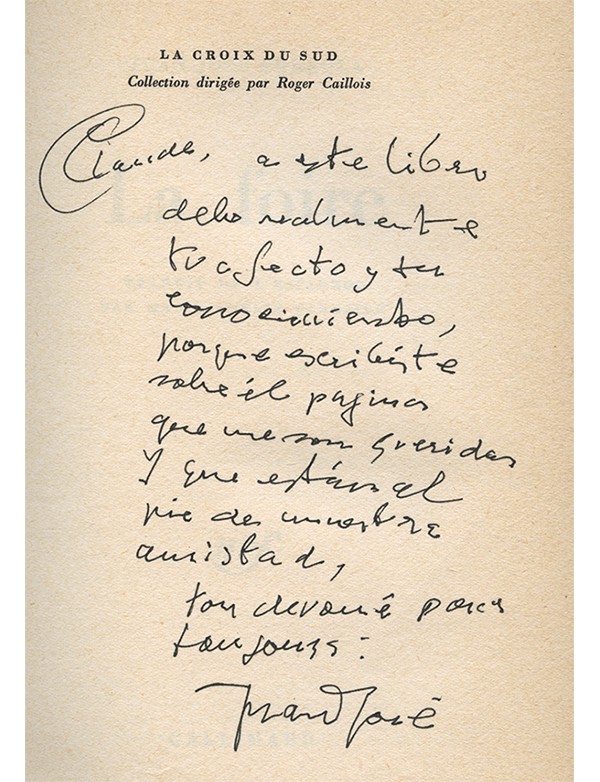 LA CROIX DU SUD
Collection dirigée par Roger Caillois
Claude, a este libro
debo realmente
tu afecto y tu
conocimiento,
porque escribiste
sobre él paginas
que me son queridas
y que están al
pie de nuestra
amistad,
ton devoué para
toujours:
Juan José
La foire
GALLIMARD